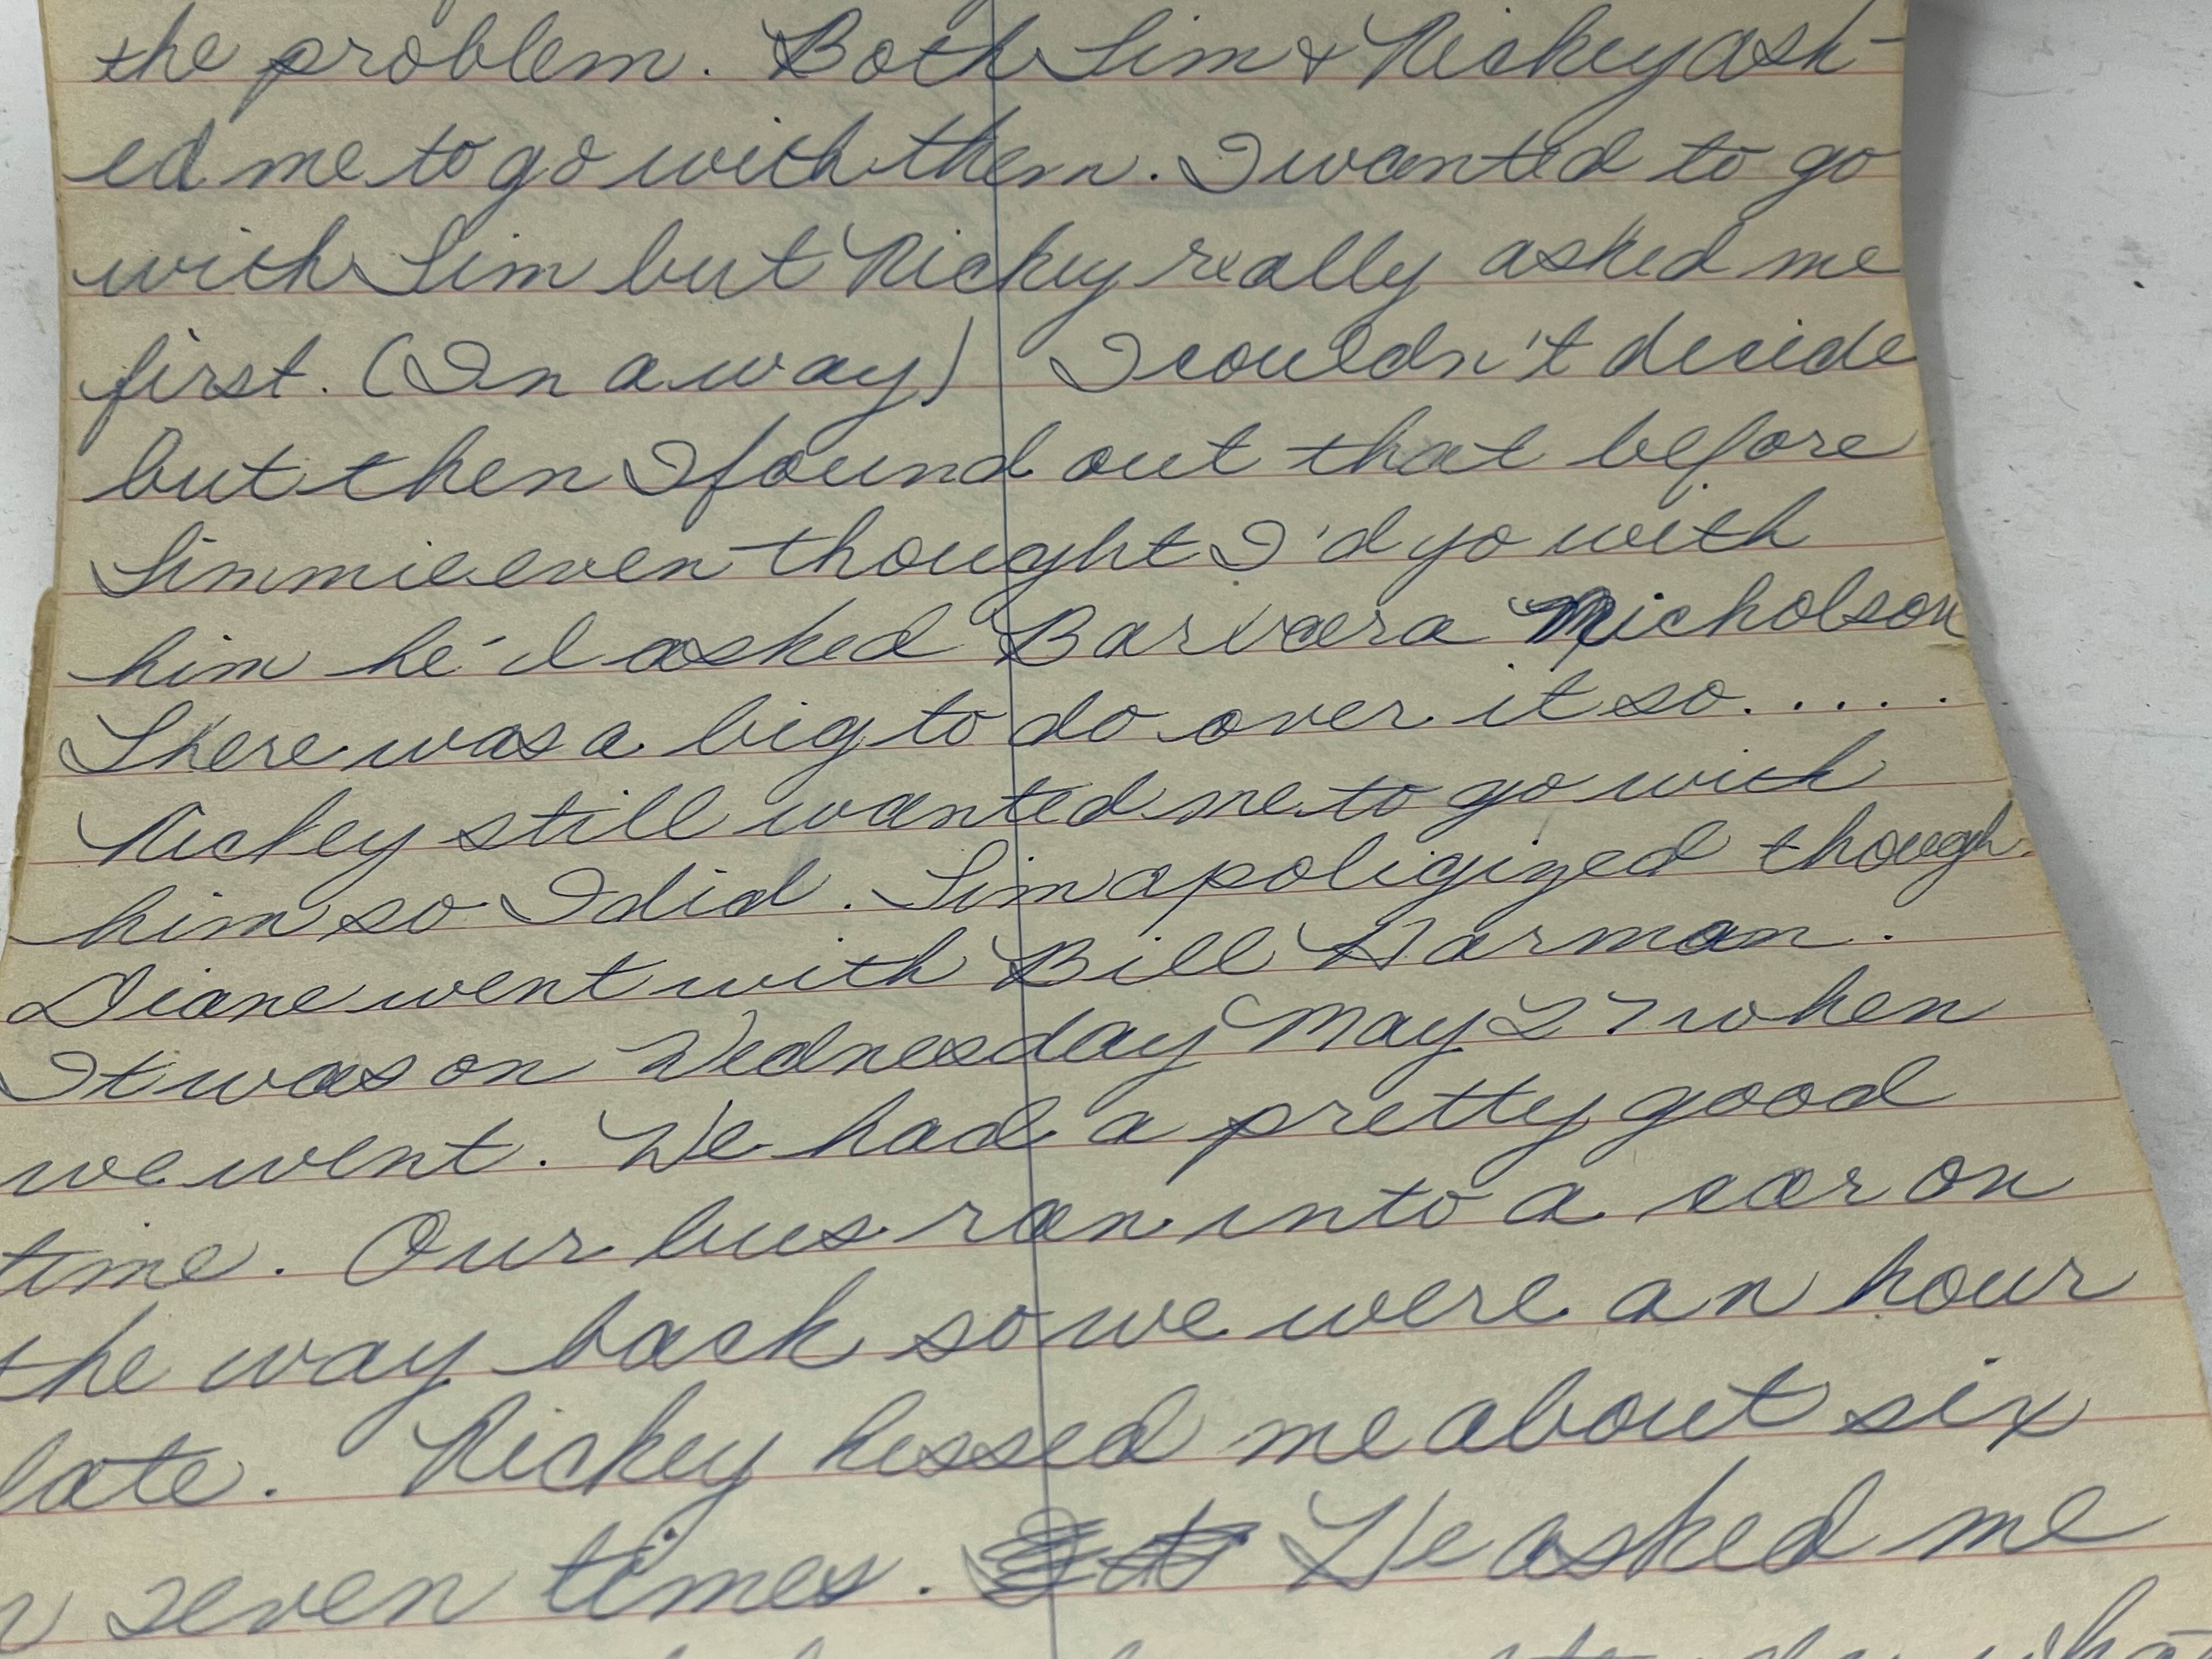 the problem. Both Tim & Nickey ask-
ed me to go with them. I wanted to go
with Tim but Nickey really asked me
first. (In a way) I couldn't decide
but then I found out that before
Timmie even thought I'd go with
him he'd asked Barbara Nicholson
There was a big to do over it so.....
Nickey still wanted me to go with
him so I did. Tim apoligized though
Diane went with Bill Harman.
It was on Wednesday May 27 when
we went. We had a pretty good
time. Our bus ran into a car on
the way back so we were an hour
late. Nickey kissed me about six
seven times. He asked me